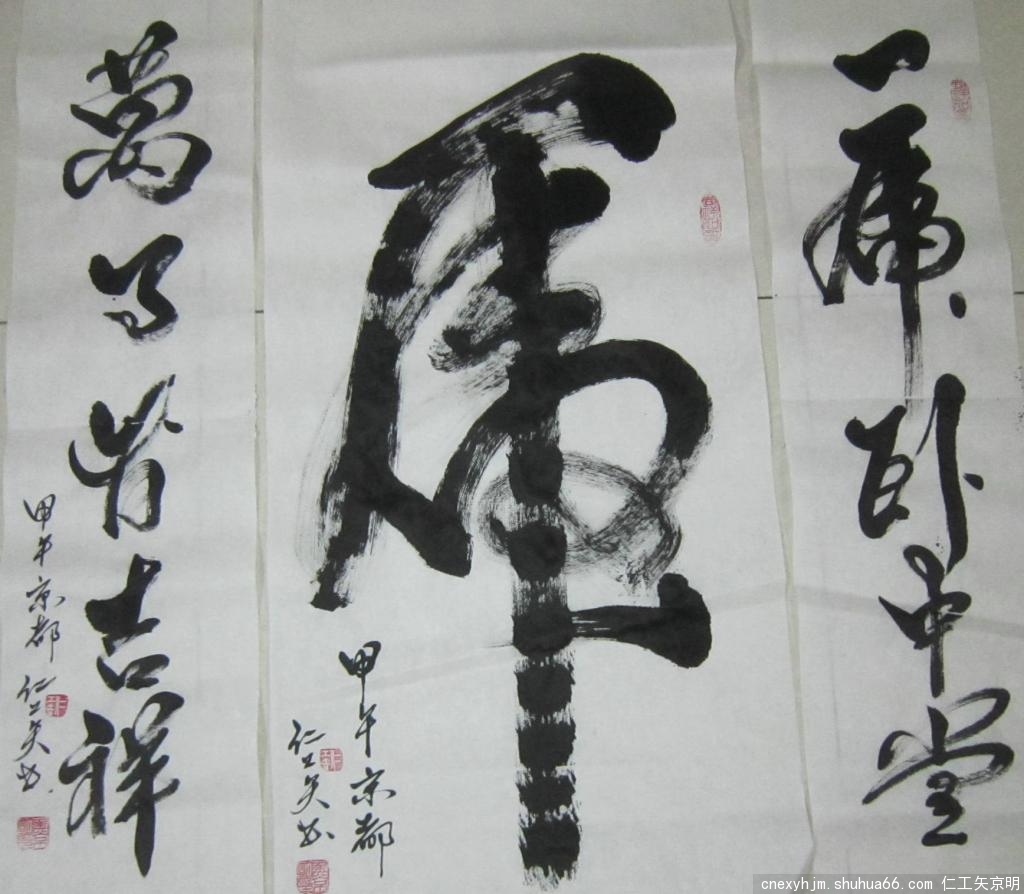 一虎卧中堂
虎
甲午京都
仁工矢书
萬事皆吉祥
甲午京都
仁工矢书
cnexyhjm.shuhua66.com 仁工矢京明